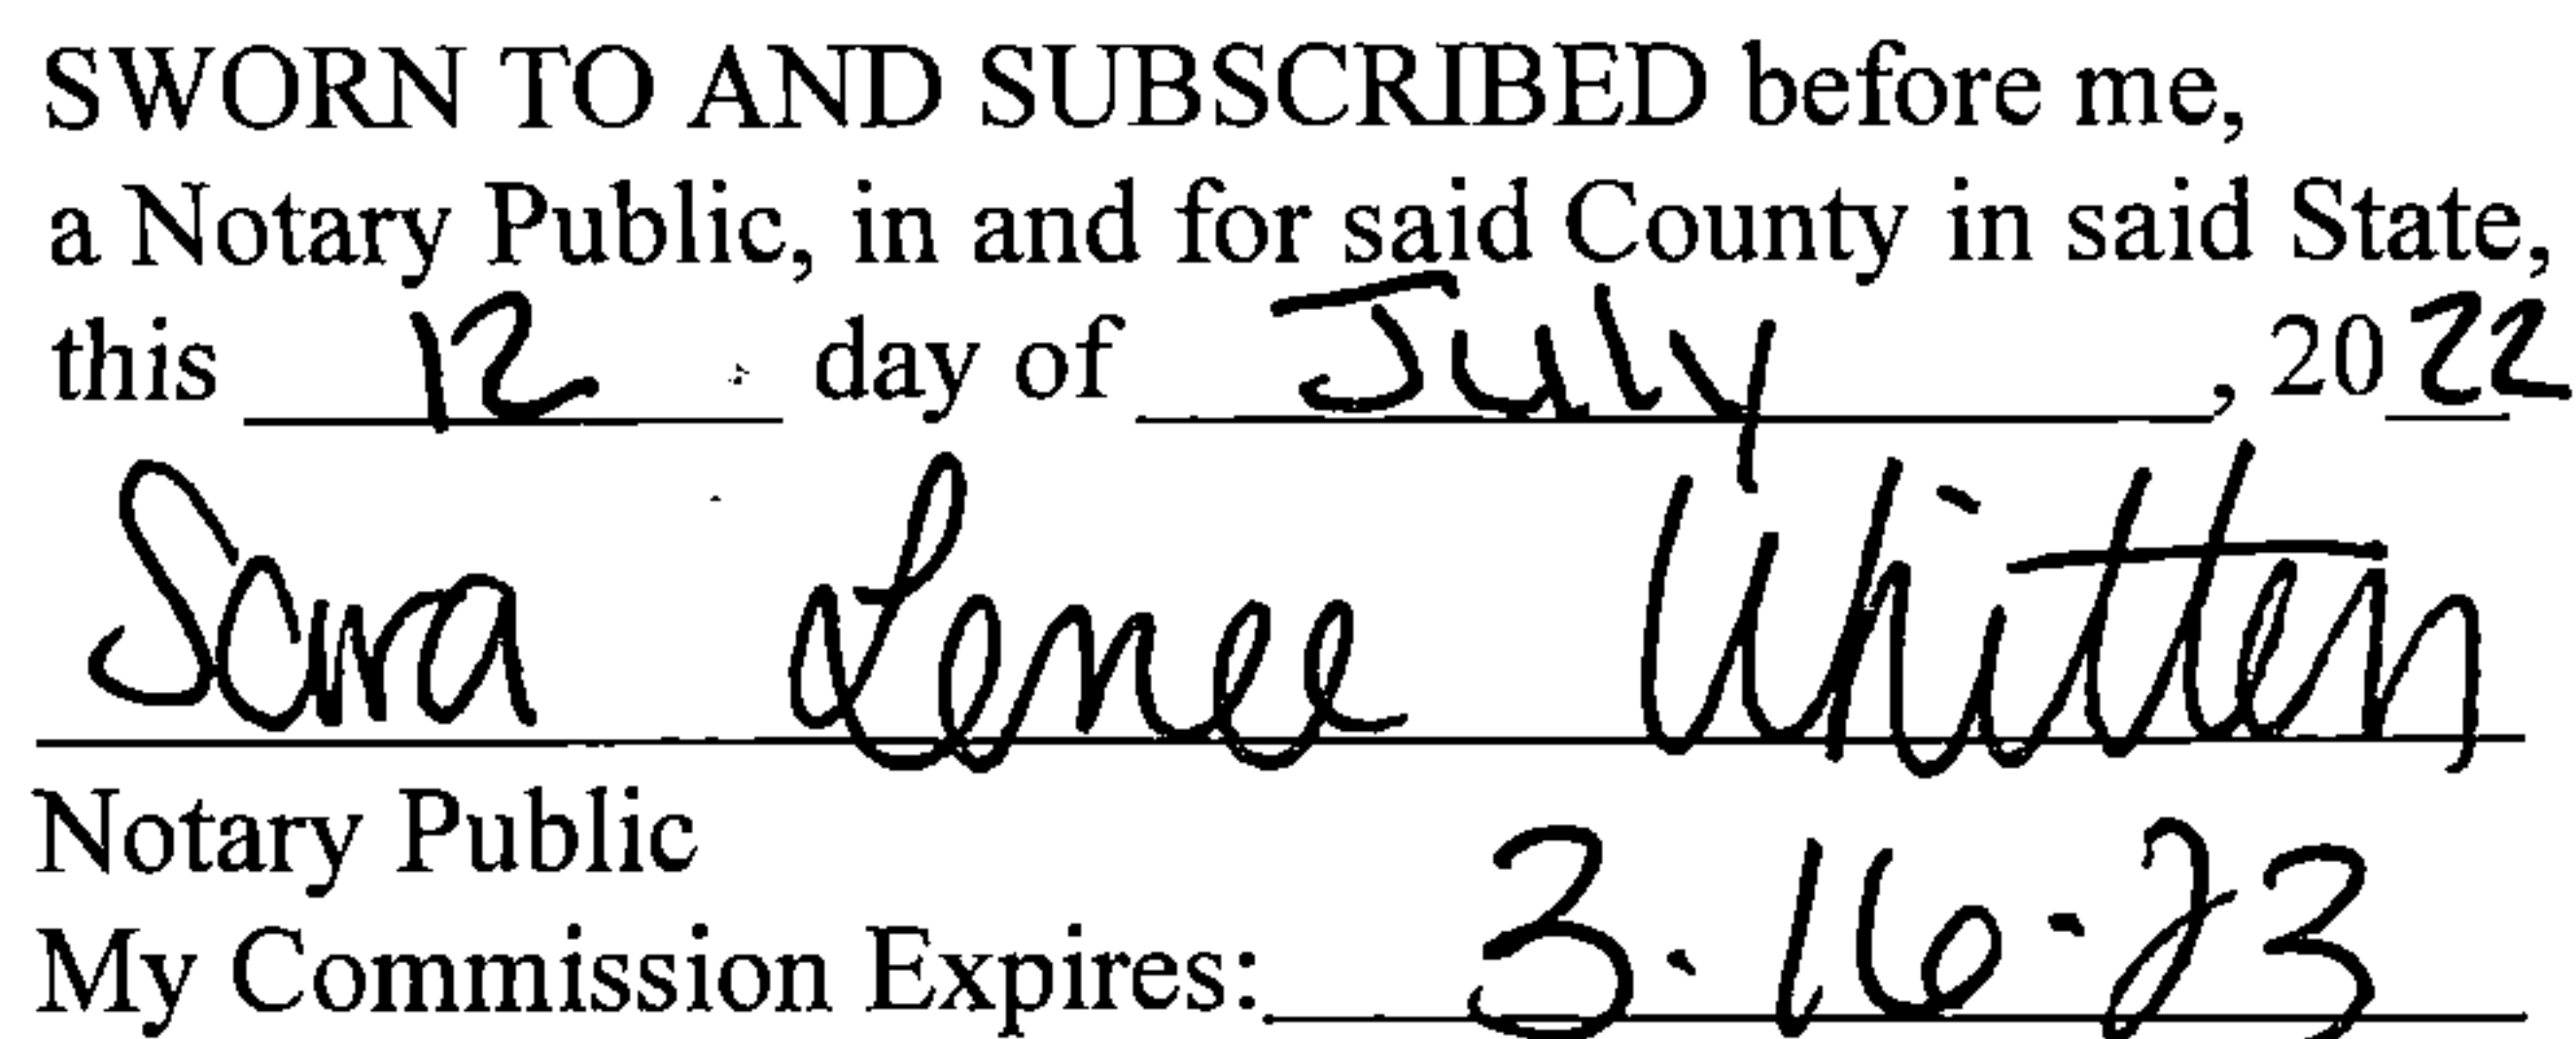 SWORN TO AND SUBSCRIBED before me,
a Notary Public, in and for said County in said State,
this 12 day of July, 2022
Sara Lenee Whitten
Notary Public
My Commission Expires: 3-16-23